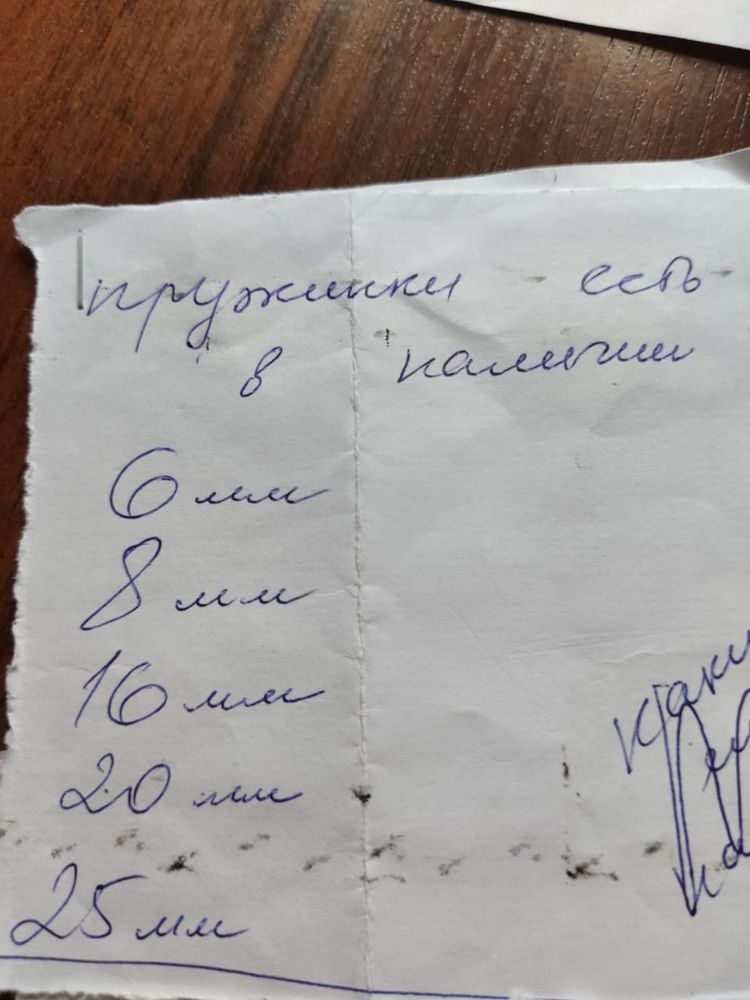 пружинки есть
в наличии
6 мм
8 мм
16 мм
20 мм
25 мм